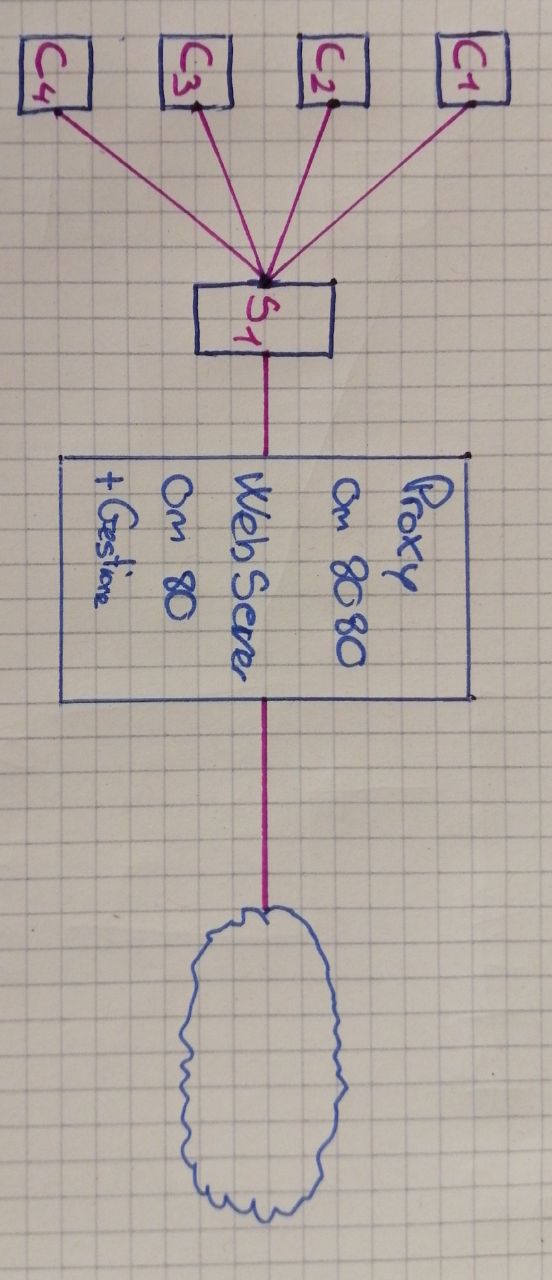 C1
C2
C3
C4
S1
Proxy
on 8080
Web Server
on 80
+ Gestione